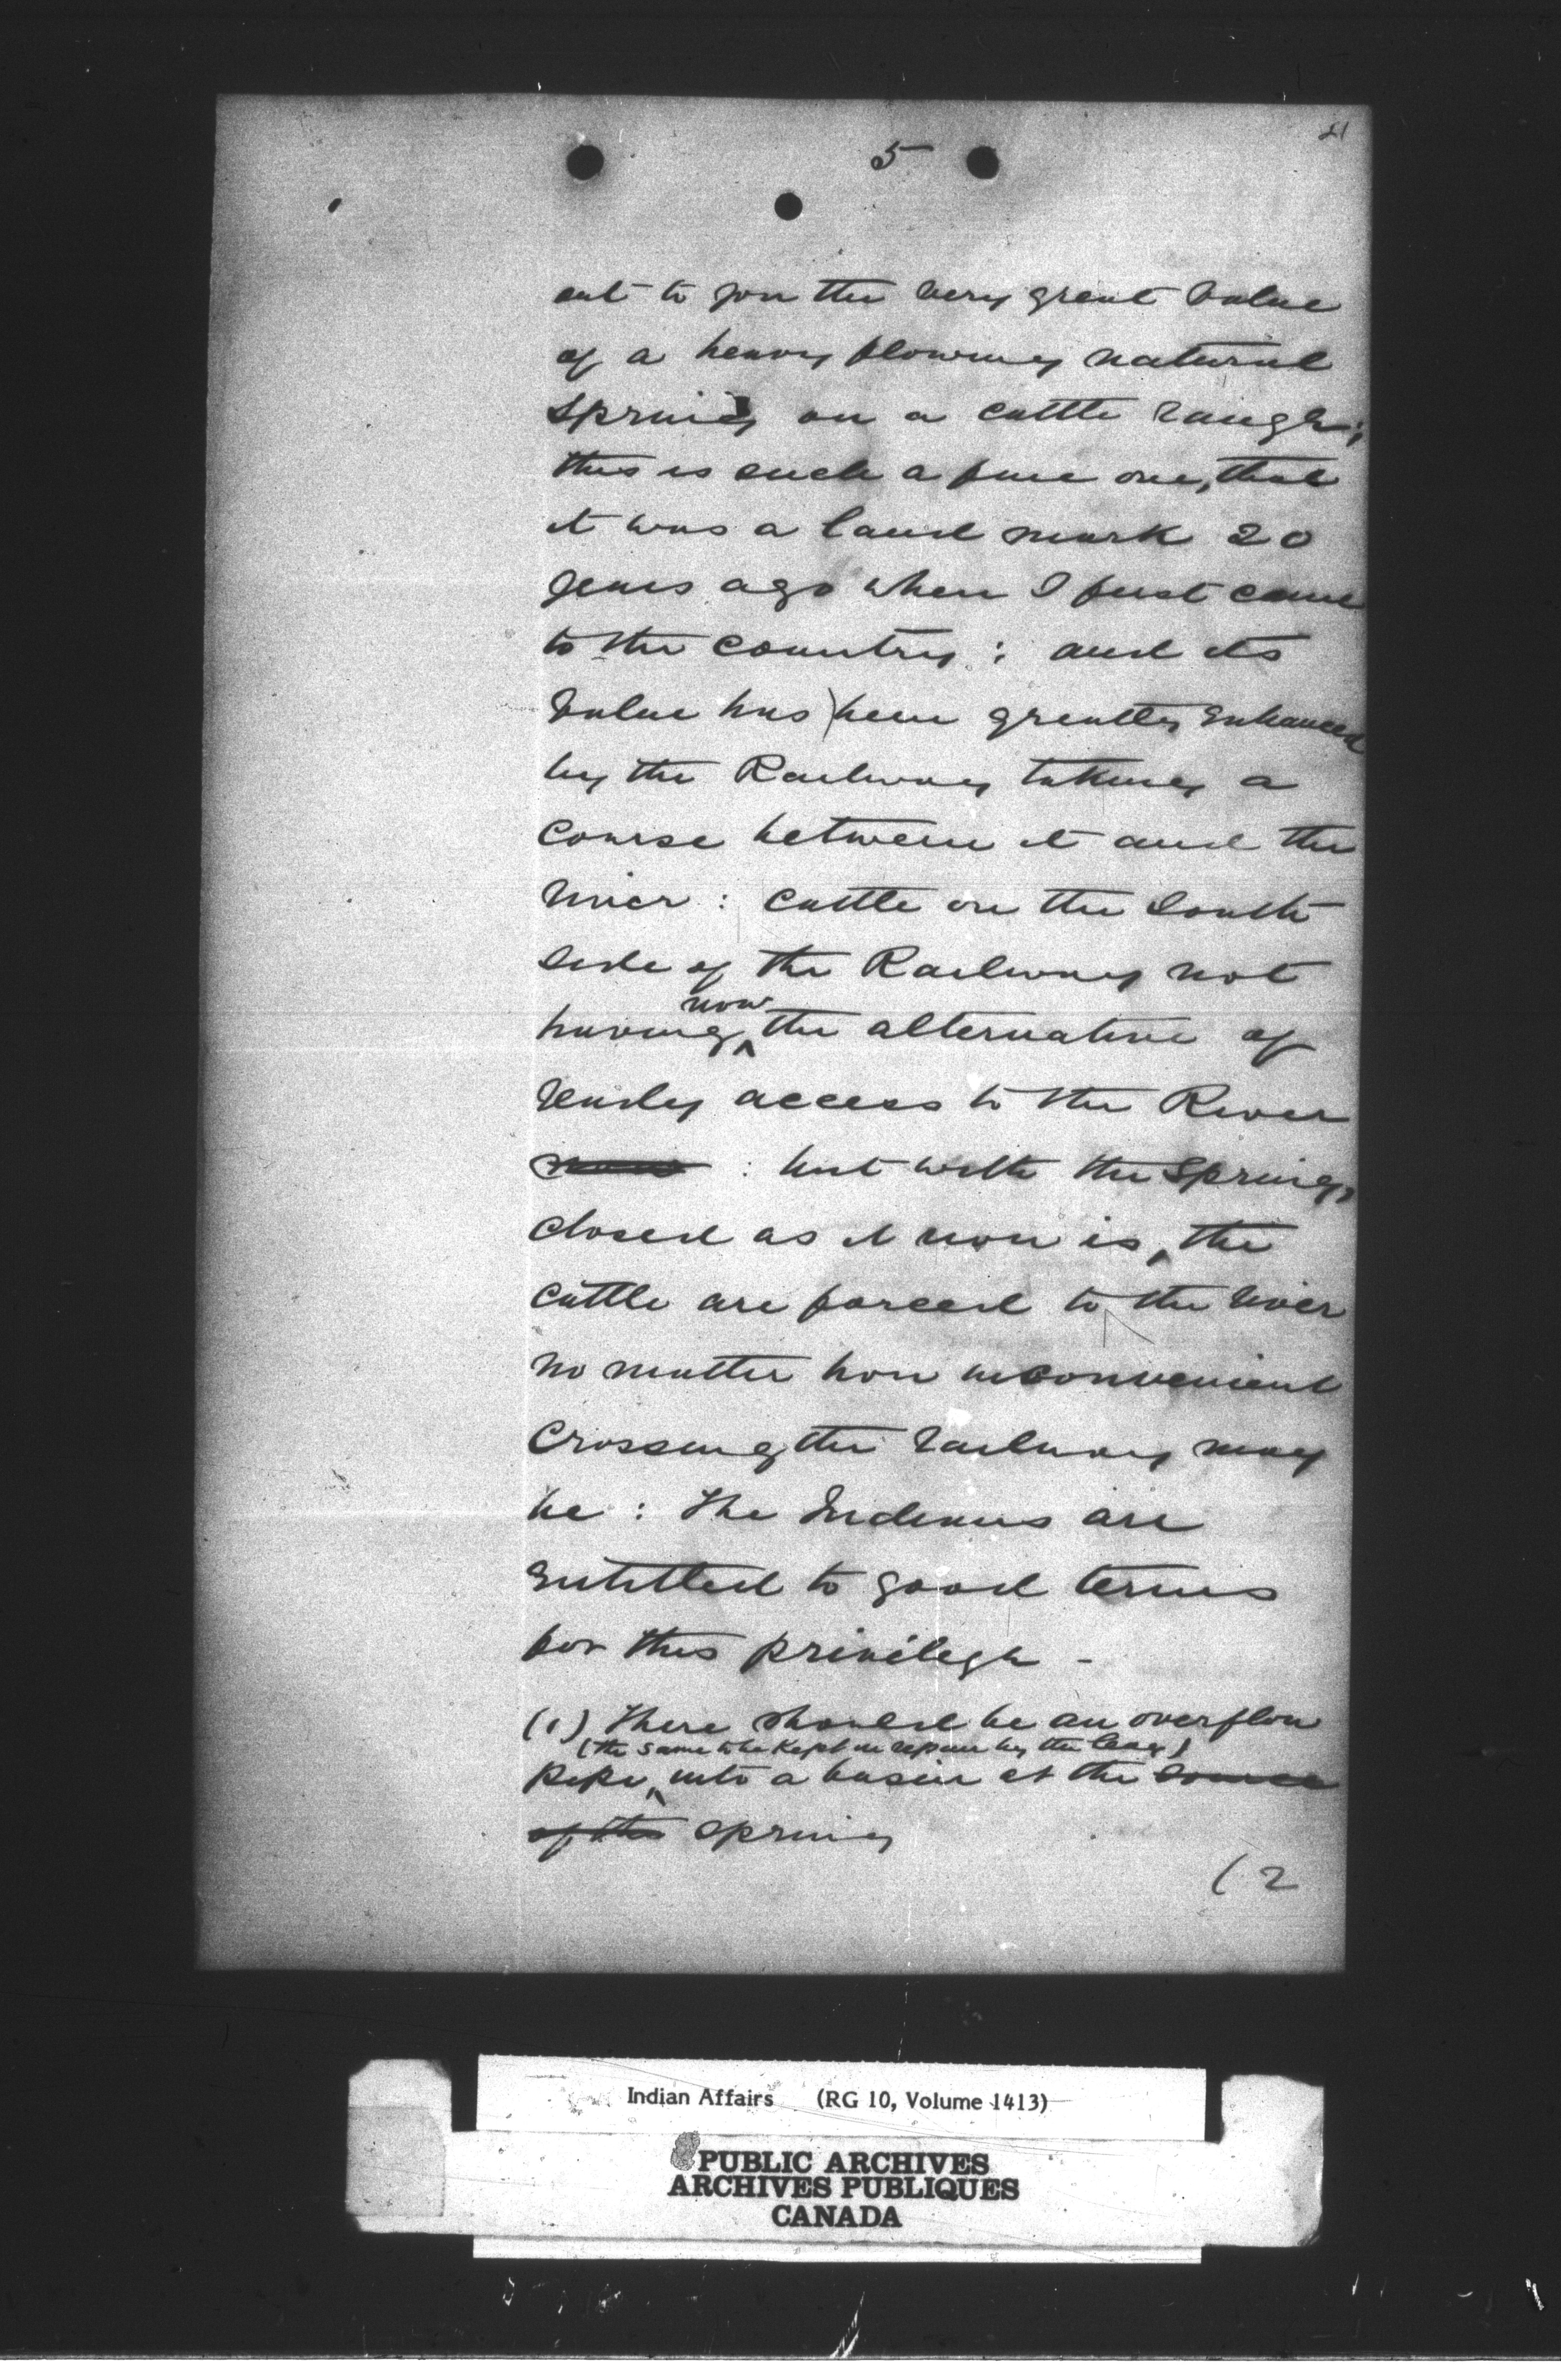 5
out to you the very great value
of a heavy flowing natural
spring on a cattle range;
this is such a fine one, that
it was a land mark 20
years ago when I first came
to the country : and its
value has been greatly enhanced
by the Railway taking a
course between it and the
river : cattle on the South
side of the Railway not
now
having the alternative of
ready access to the River
: but with the Spring,
closed as it now is, the
cattle are forced to the river
no matter how inconvenient
crossing the railway may
be : The Indians are
entitled to good terms
for this privilege -
(1) There should be an overflow
(the same to be kept in repair by the
pipe into a basin at the source
of the spring
(2
Indian Affairs (RG 10, Volume 1413)
PUBLIC ARCHIVES
ARCHIVES PUBLIQUES
CANADA